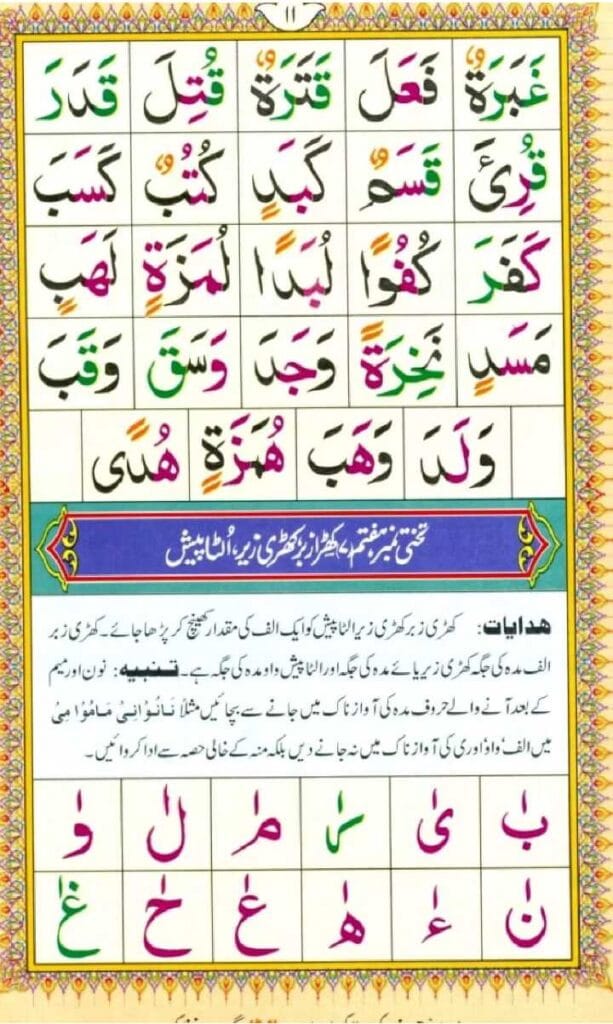 ۱۱
غَبَرَةٌ فَعَلَ قَتَرَةٌ قُتِلَ قَدَرَ
قُرِئَ قَسَمٌ كَبَدٍ كُتُبٌ كَسَبَ
كَفَرَ كُفُوًا لُبَدًا لُمَزَةٍ لَهَبٍ
مَسَدٍ نَخِرَةً وَجَدَ وَسَقَ وَقَبَ
وَلَدَ وَهَبَ هُمَزَةٍ هُدًى
تختی نمبر ہفتم ۷ کھڑا زبر، کھڑی زیر، اُلٹا پیش
ھدایات: کھڑی زبر کھڑی زیر الٹا پیش کو ایک الف کی مقدار کھینچ کر پڑھا جائے۔ کھڑی زبر
الف مدہ کی جگہ کھڑی زیر یائے مدہ کی جگہ اور الٹا پیش واو مدہ کی جگہ ہے۔ تنبیہ: نون اور میم
کے بعد آنے والے حروف مدہ کی آواز ناک میں جانے سے بچائیں مثلاً نَانُوْانِیْ مَامُوْا مِیْ
میں الف، واؤ، اور ی کی آواز ناک میں نہ جانے دیں بلکہ منہ کے خالی حصہ سے ادا کروائیں۔
بٰ یٰ رٰ مٰ لٰ وٰ
نٰ ءٰ هٰ عٰ حٰ غٰ